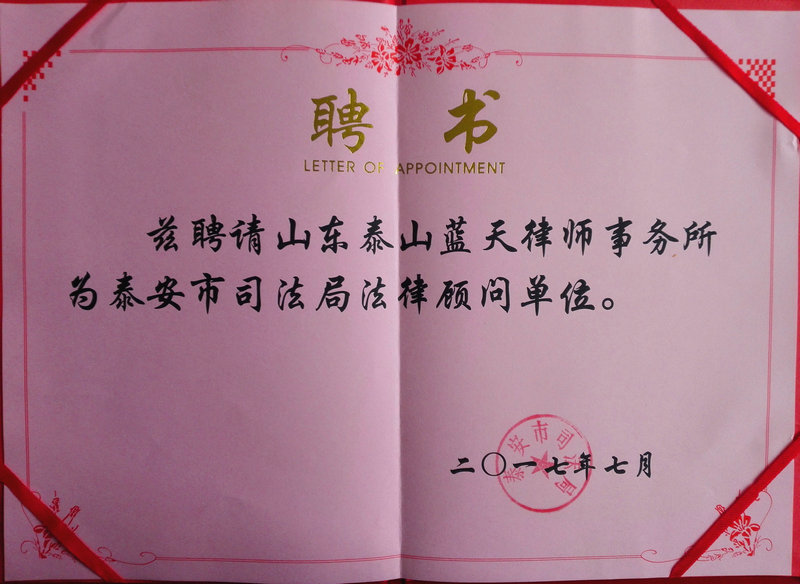 聘 书
LETTER OF APPOINTMENT
兹聘请山东泰山蓝天律师事务所
为泰安市司法局法律顾问单位。
泰安市司法局
二〇一七年七月